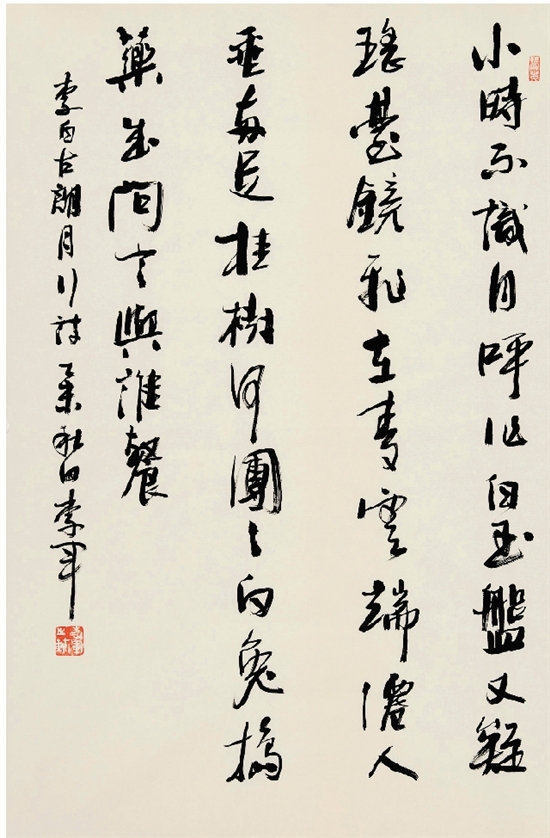 小時不識月呼作白玉盤又疑
瑤臺鏡飛在青雲端僊人
垂兩足桂樹何團々白兔搗
藥成問言與誰餐
李白古朗月行詩 乙未秋日李軍